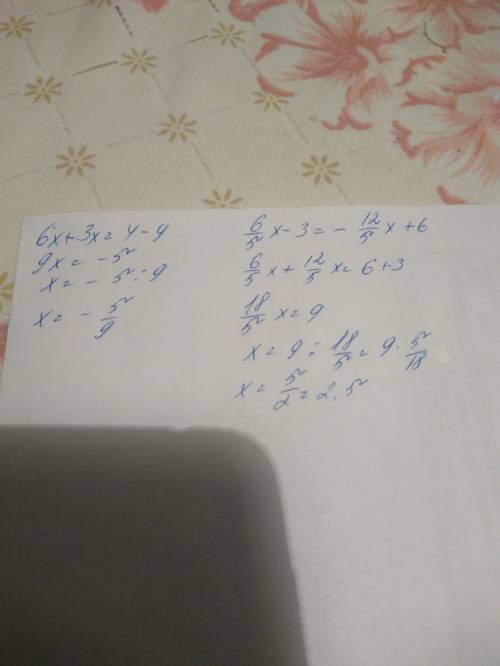 6x+3x=4-9
9x=-5
x=-5:9
x=-5/9
6/5x-3=-12/5x+6
6/5x+12/5x=6+3
18/5x=9
x=9:18/5=9·5/18
x=5/2=2.5